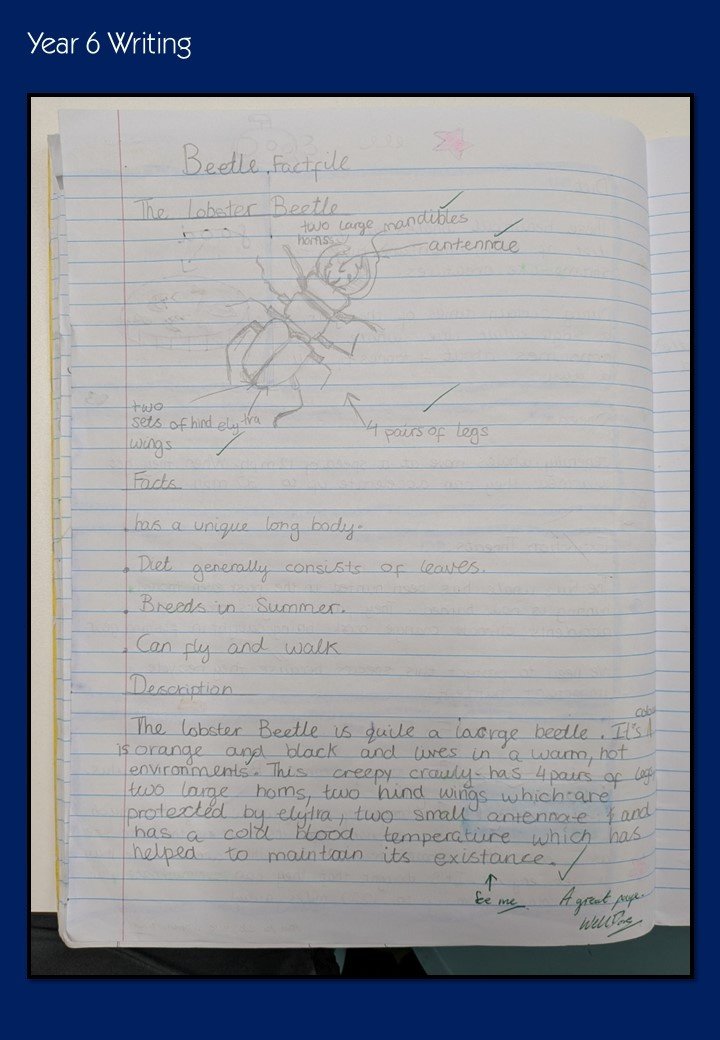 Year 6 Writing
Beetle Factfile
The Lobster Beetle
two large mandibles
horns
antennae
two
sets of hind elytra
wings
4 pairs of legs
Facts
has a unique long body.
Diet generally consists of leaves.
Breeds in Summer.
Can fly and walk
Description
The lobster Beetle is quite a large beetle. It's
is orange and black and lives in a warm, hot
environments. This creepy crawly has 4 pairs of legs
two large horns, two hind wings which are
protected by elytra, two small antennae and
has a cold blood temperature which has
helped to maintain its existance.
See me
A great page.
Well Done